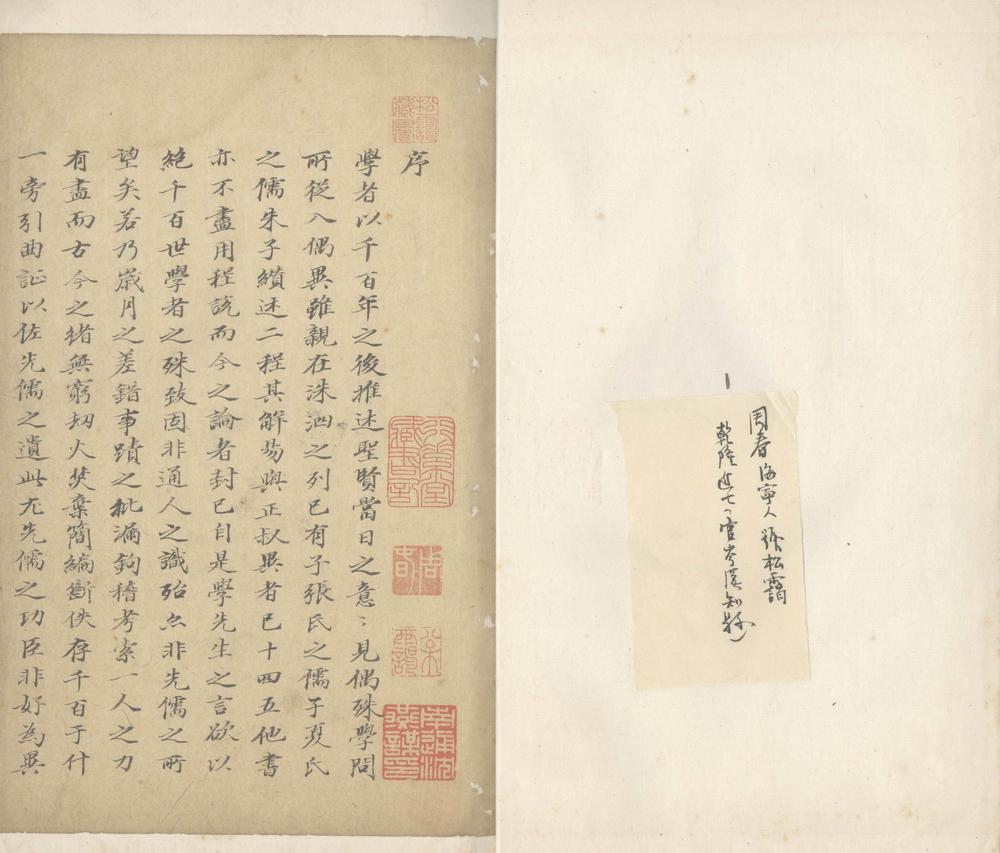 周春海寧人號松靄
乾隆進士官岑溪知縣
序
學者以千百年之後推述聖賢當日之意〻見偶殊學問
所從入偶異雖親在洙泗之列已有子張氏之儒子夏氏
之儒朱子纘述二程其解易與正叔異者已十四五他書
亦不盡用程說而今之論者封已自是學先生之言欲以
絕千百世學者之殊致固非通人之識殆亦非先儒之所
望矣若乃歲月之差錯事蹟之紕漏鉤稽考索一人之力
有盡而古今之緒無窮刼火焚棄簡編斷佚存千百于什
一旁引曲証以佐先儒之遺此尤先儒之功臣非好為異
松靄藏書
周春
南通沈燕謀印